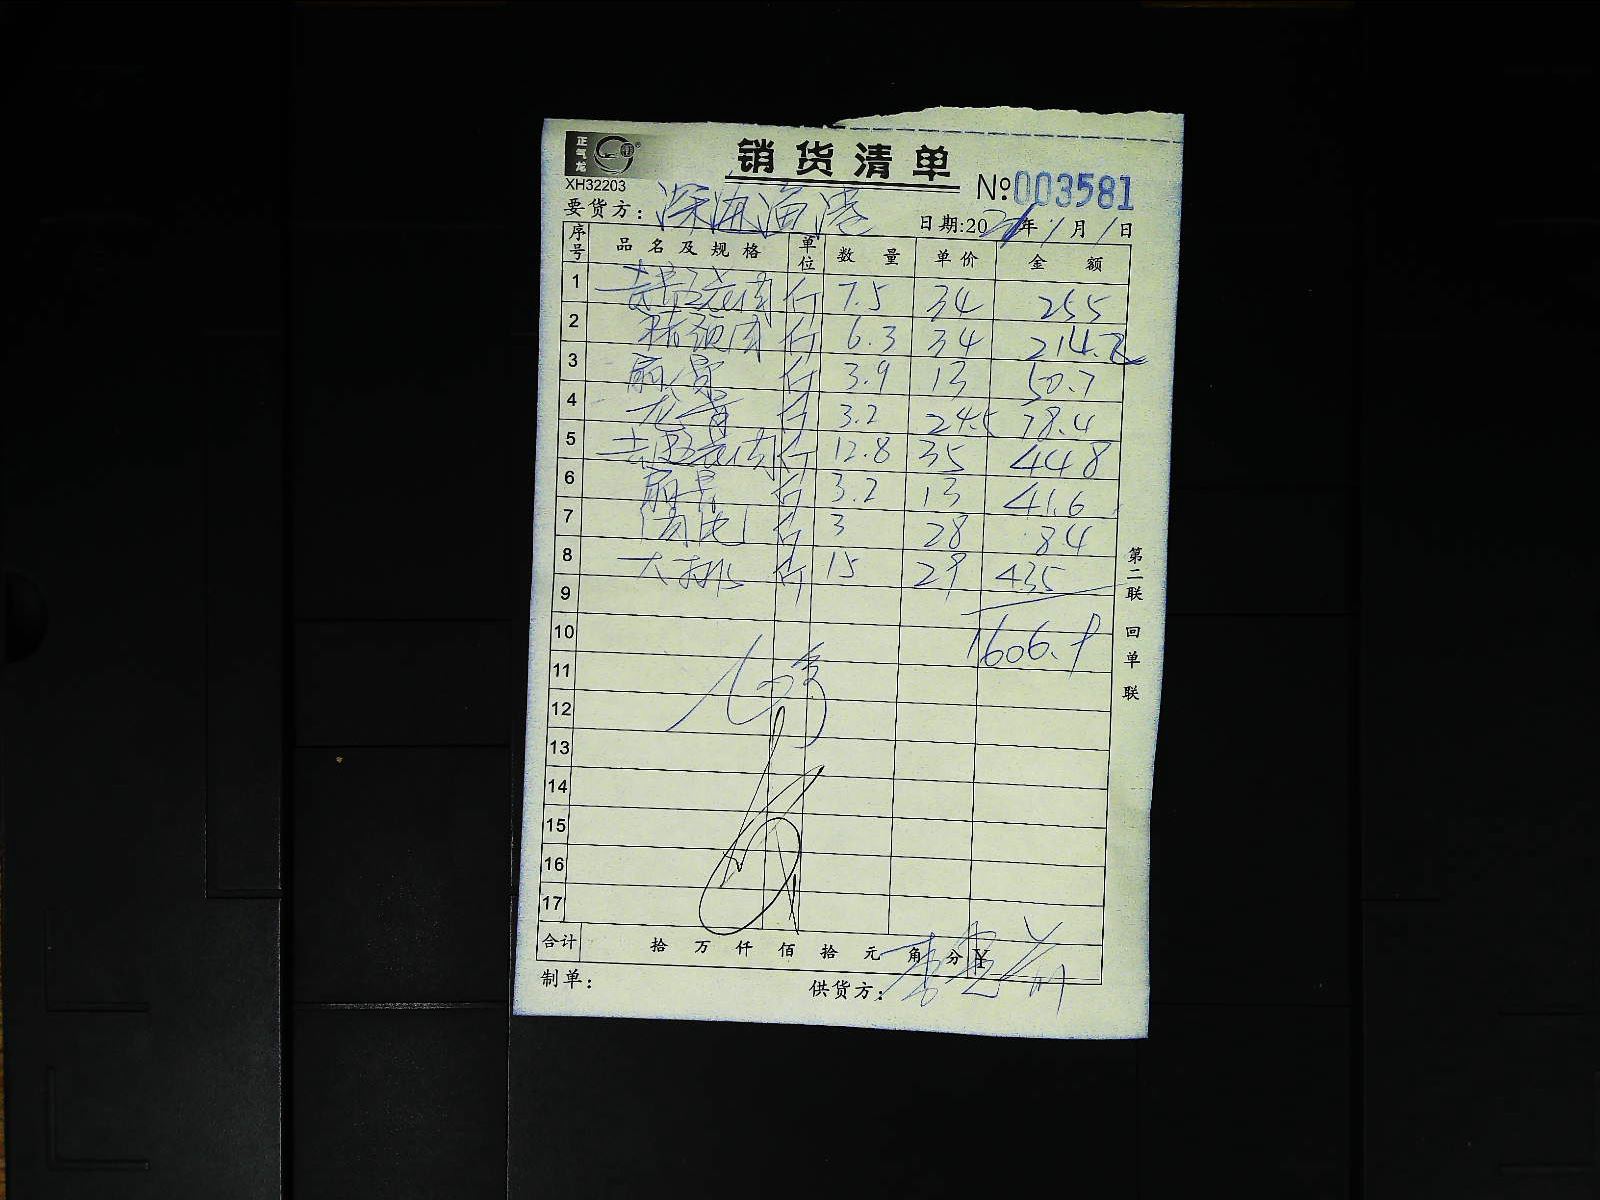 正气龙
销货清单
XH32203
№003581
要货方: 深海渔港
日期:2021年1月1日
序号 品名及规格 单位 数量 单价 金额
1 去骨五花肉 斤 7.5 34 255
2 斤 6.3 34 214.2
3 斤 3.9 13 50.7
4 龙骨 斤 3.2 24.5 78.4
5 五花肉 斤 12.8 35 448
6 斤 3.2 13 41.6
7 斤 3 28 84
8 大排 斤 15 29 435
9 1606.9
10
11
12
13
14
15
16
17
合计 拾 万 仟 佰 拾 元 角 分 ¥
制单: 供货方:
第二联 回单联